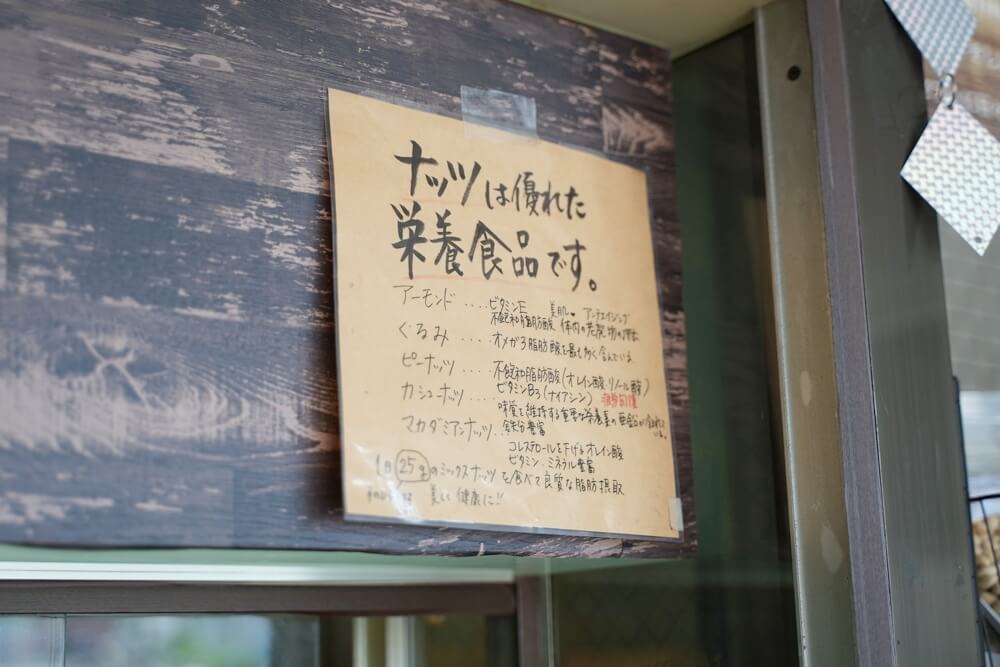 ナッツは優れた
栄養食品です。
アーモンド‥‥ビタミンE 美肌♥ アンチエイジング
不飽和脂肪酸 体内の老廃物の
くるみ‥‥オメガ3脂肪酸を最も多く含んでいる
ピーナッツ‥‥不飽和脂肪酸(オレイン酸・リノール酸)
ビタミンB3(ナイアシン)
カシューナッツ‥‥味覚を維持する重要な栄養素の亜鉛が含まれている。
鉄分豊富
マカダミアンナッツ‥コレステロールを下げるオレイン酸
ビタミン・ミネラル豊富
1日25gのミックスナッツを食べて良質な脂肪摂取
美しく健康に!!